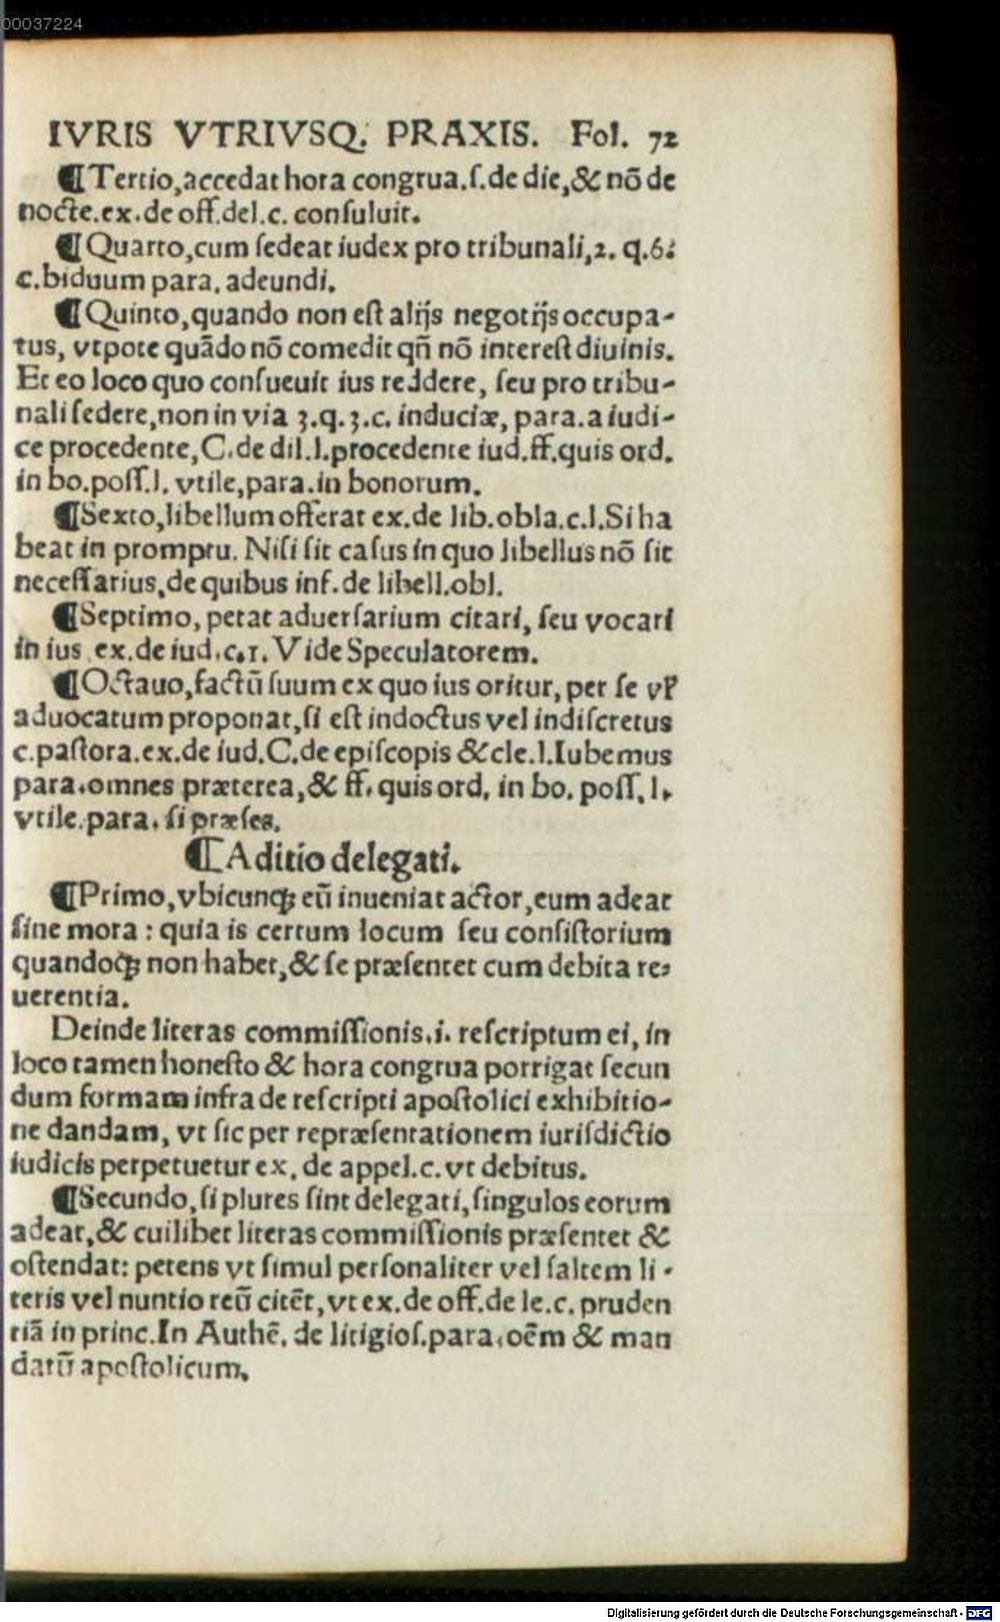 00037224
IVRIS VTRIVSQ; PRAXIS. Fol. 72
¶Tertio,accedat hora congrua.ſ.de die,& nõ de
nocte.ex.de off.del.c. conſuluit.
¶Quarto,cum ſedeat iudex pro tribunali,2. q.6.
c.biduum para. adeundi.
¶Quinto,quando non eſt alijs negotijs occupa-
tus, vtpote quãdo nõ comedit qñ nõ intereſt diuinis.
Et eo loco quo conſueuit ius reddere, ſeu pro tribu-
nali ſedere,non in via 3.q.3.c. induciæ, para.a iudi-
ce procedente,C.de dil.l.procedente iud.ff.quis ord.
in bo.poſſ.l. vtile,para.in bonorum.
¶Sexto,libellum offerat ex.de lib.obla.c.l.Si ha
beat in promptu. Niſi ſit caſus in quo libellus nõ ſit
neceſſarius,de quibus inf.de libell.obl.
¶Septimo, petat aduerſarium citari, ſeu vocari
in ius ex.de iud.c.1. Vide Speculatorem.
¶Octauo,factũ ſuum ex quo ius oritur, per ſe vl̓
aduocatum proponat,ſi eſt indoctus vel indiſcretus
c.paſtora.ex.de iud.C.de epiſcopis & cle.l.Iubemus
para.omnes præterea,& ff. quis ord. in bo. poſſ. l.
vtile.para. ſi præſes.
¶Aditio delegati.
¶Primo,vbicunq; eũ inueniat actor,eum adeat
ſine mora : quia is certum locum ſeu conſiſtorium
quandoq; non habet,& ſe præſentet cum debita re-
uerentia.
Deinde literas commiſſionis.i. reſcriptum ei, in
loco tamen honeſto & hora congrua porrigat ſecun
dum formam infra de reſcripti apoſtolici exhibitio-
ne dandam, vt ſic per repræſentationem iuriſdictio
iudicis perpetuetur ex. de appel.c.vt debitus.
¶Secundo,ſi plures ſint delegati,ſingulos eorum
adeat,& cuilibet literas commiſſionis præſentet &
oſtendat: petens vt ſimul perſonaliter vel ſaltem li-
teris vel nuntio reũ citẽt,vt ex.de off.de le.c. pruden
tiã in princ.In Authẽ. de litigioſ.para.oẽm & man
datũ apoſtolicum.
Digitalisierung gefördert durch die Deutsche Forschungsgemeinschaft - DFG